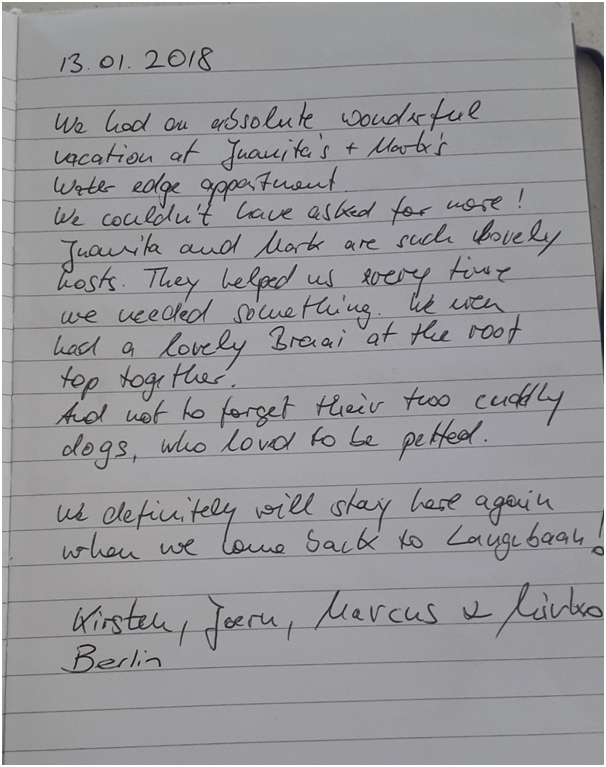 13.01.2018
We had an absolute wonderful
vacation at Juanita's + Mark's
Water edge appartment.
We couldn't have asked for more!
Juanita and Mark are such lovely
hosts. They helped us every time
we needed something. We even
had a lovely Braai at the roof
top together.
And not to forget their two cuddly
dogs, who loved to be petted.
We definitely will stay here again
when we come back to Langebaan!
Kirsten, Joern, Marcus & Mirko
Berlin